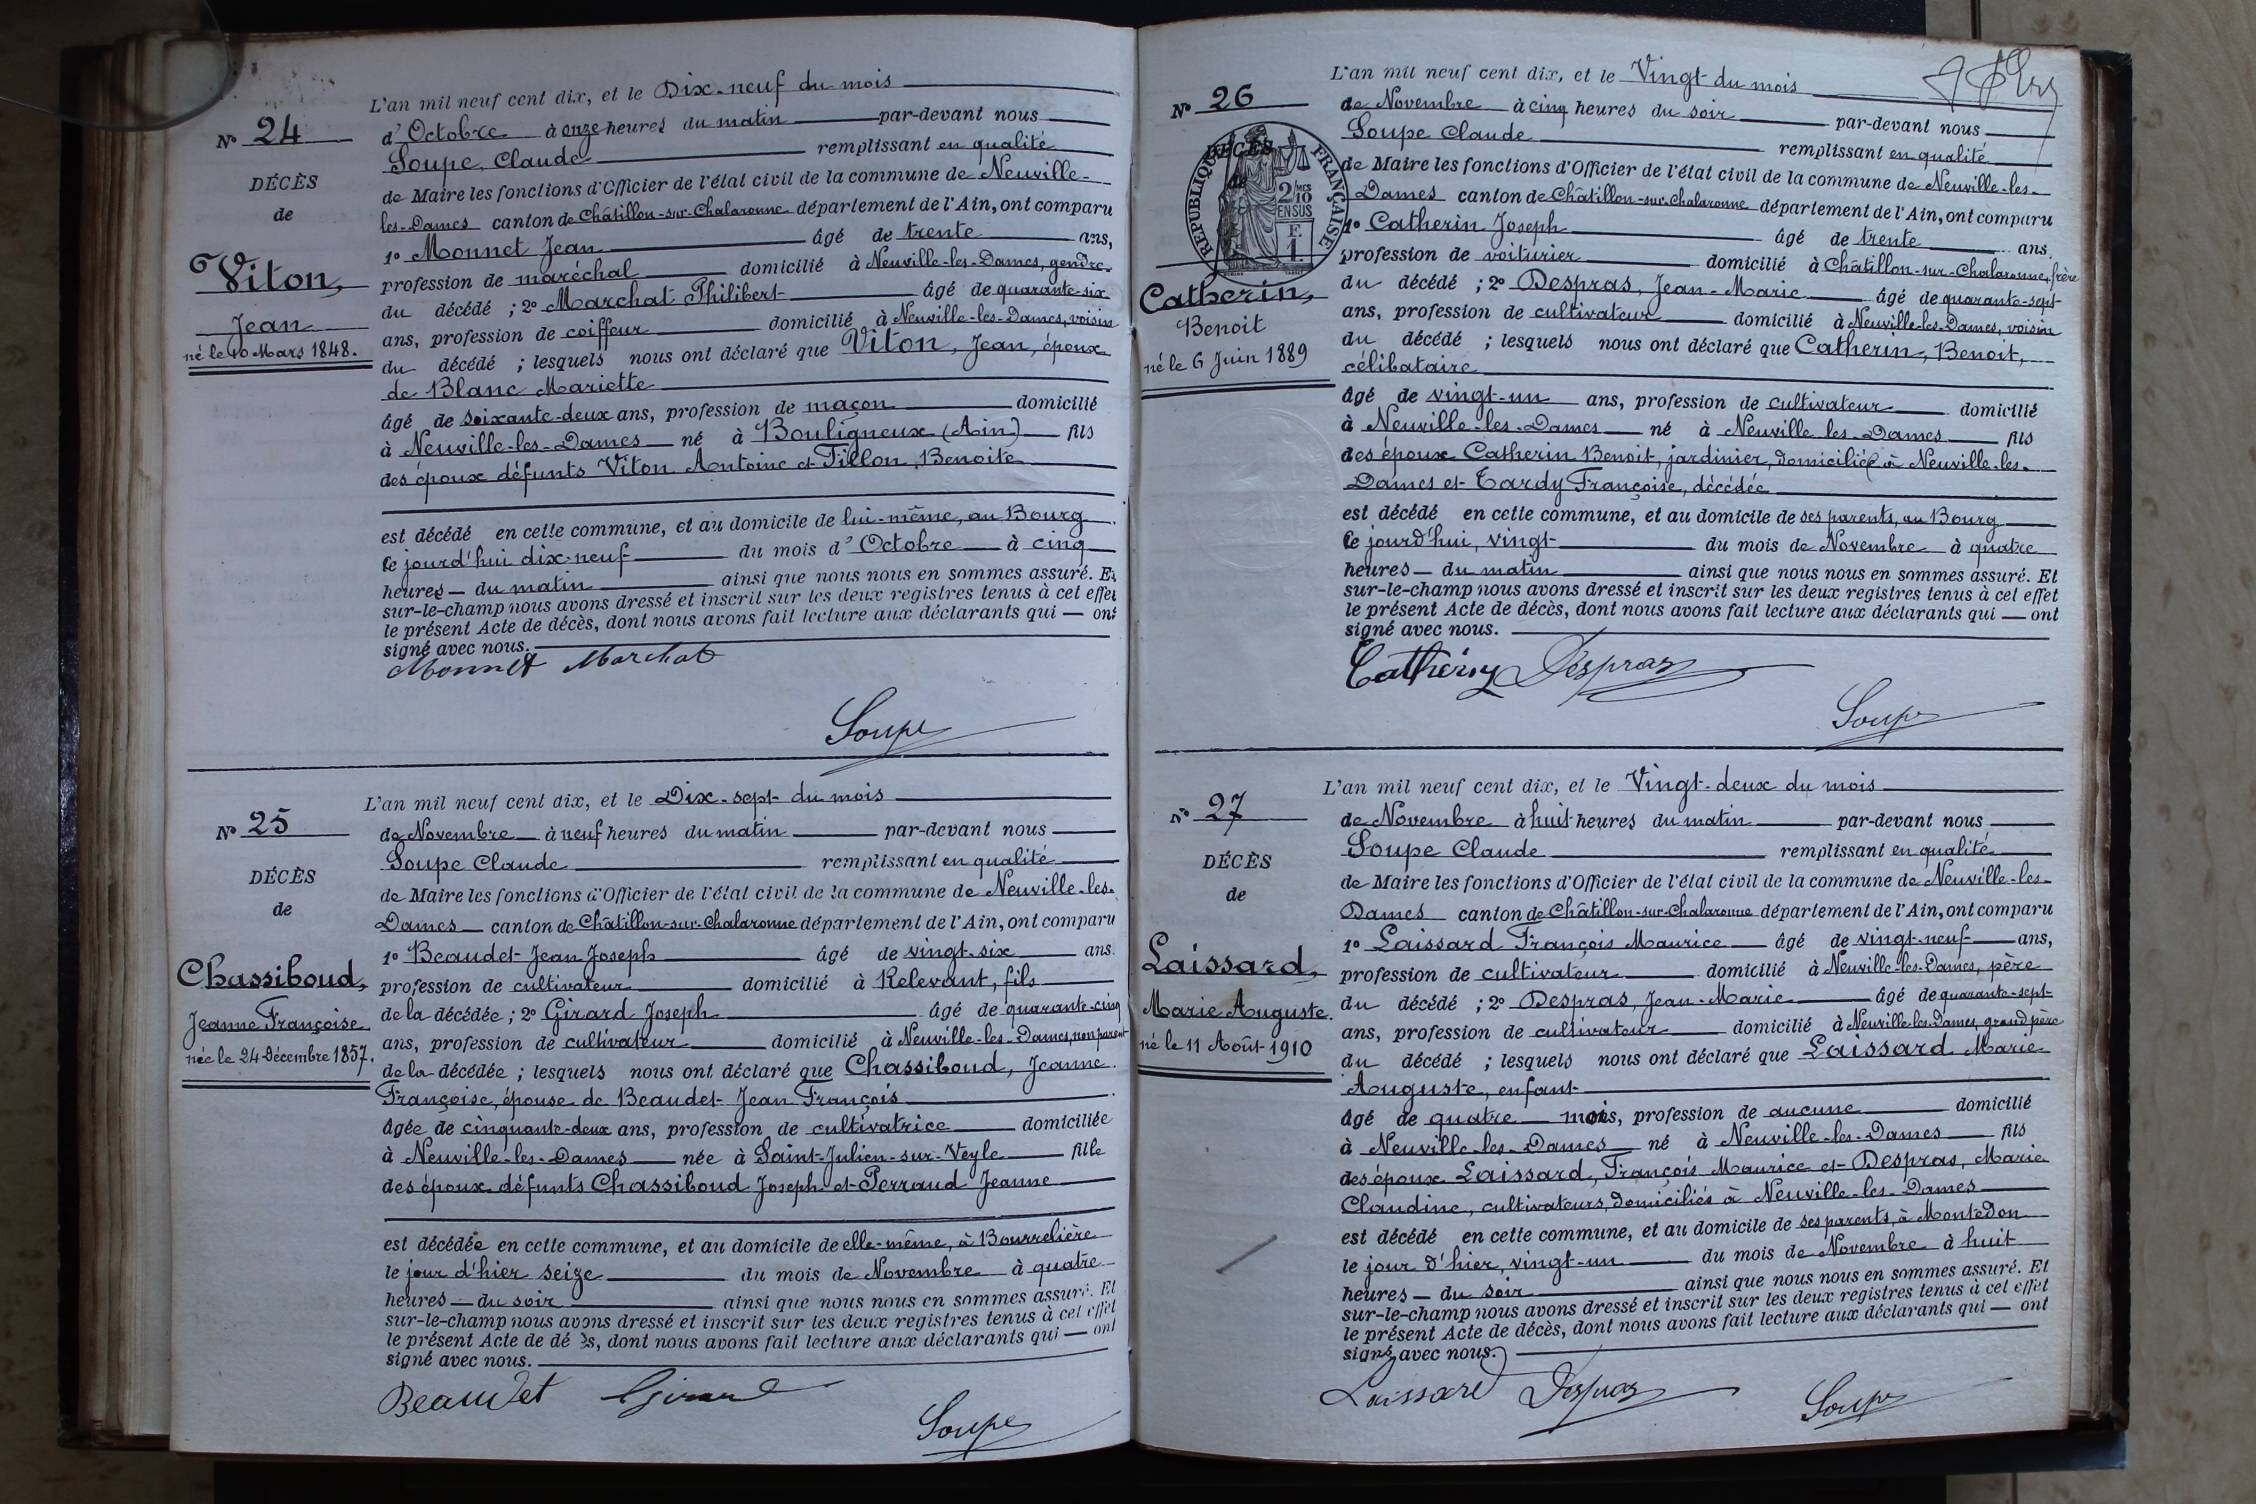 L'an mil neuf cent dix, et le Dix-neuf du mois
N° 24
d'Octobre à onze heures du matin par-devant nous
Soupe, Claude remplissant en qualité
DÉCÈS
de Maire les fonctions d'Officier de l'état civil de la commune de Neuville-
de
les-Dames canton de Châtillon-sur-Chalaronne département de l'Ain, ont comparu
1° Monnet Jean âgé de trente ans,
Viton,
profession de maréchal domicilié à Neuville-les-Dames, gendre
du décédé ; 2° Marchat Philibert âgé de quarante-six
Jean
ans, profession de coiffeur domicilié à Neuville-les-Dames, voisin
né le 10 Mars 1848.
du décédé ; lesquels nous ont déclaré que Viton, Jean, époux
de Blanc Mariette
âgé de soixante-deux ans, profession de maçon domicilié
à Neuville-les-Dames né à Bouligneux (Ain) fils
des époux défunts Viton Antoine et Tillon, Benoite
est décédé en cette commune, et au domicile de lui-même, au Bourg
le jourd'hui dix-neuf du mois d'Octobre à cinq
heures — du matin ainsi que nous nous en sommes assuré. Et
sur-le-champ nous avons dressé et inscrit sur les deux registres tenus à cet effet
le présent Acte de décès, dont nous avons fait lecture aux déclarants qui — ont
signé avec nous.
Monnet Marchat
Soupe
L'an mil neuf cent dix, et le Dix-sept du mois
N° 25
de Novembre à neuf heures du matin par-devant nous
Soupe Claude remplissant en qualité
DÉCÈS
de Maire les fonctions d'Officier de l'état civil de la commune de Neuville-les-
de
Dames canton de Châtillon-sur-Chalaronne département de l'Ain, ont comparu
1° Beaudet Jean Joseph âgé de vingt-six ans.
Chassiboud,
profession de cultivateur domicilié à Relevant, fils
Jeanne Françoise
de la décédée ; 2° Girard Joseph âgé de quarante-cinq
née le 24 Décembre 1857.
ans, profession de cultivateur domicilié à Neuville-les-Dames, non parent
de la décédée ; lesquels nous ont déclaré que Chassiboud, Jeanne
Françoise, épouse de Beaudet Jean François
âgée de cinquante-deux ans, profession de cultivatrice domiciliée
à Neuville-les-Dames née à Saint-Julien-sur-Veyle fille
des époux défunts Chassiboud Joseph et Perraud Jeanne
est décédée en cette commune, et au domicile de elle-même, à Bourrelière
le jour d'hier seize du mois de Novembre à quatre
heures — du soir ainsi que nous nous en sommes assuré. Et
sur-le-champ nous avons dressé et inscrit sur les deux registres tenus à cet effet
le présent Acte de dé ès, dont nous avons fait lecture aux déclarants qui — ont
signé avec nous.
Beaudet Girard
Soupe
L'an mil neuf cent dix, et le Vingt du mois
N° 26
de Novembre à cinq heures du soir par-devant nous
Soupe Claude remplissant en qualité
DÉCÈS
de
RÉPUBLIQUE FRANÇAISE
2/10 MES
EN SUS
F.
1
de Maire les fonctions d'Officier de l'état civil de la commune de Neuville-les-
Dames canton de Châtillon-sur-Chalaronne département de l'Ain, ont comparu
1° Catherin Joseph âgé de trente ans.
profession de voiturier domicilié à Châtillon-sur-Chalaronne, frère
Catherin,
du décédé ; 2° Despras, Jean-Marie âgé de quarante-sept
Benoit
ans, profession de cultivateur domicilié à Neuville-les-Dames, voisin
né le 6 Juin 1889
du décédé ; lesquels nous ont déclaré que Catherin, Benoit,
célibataire
âgé de vingt-un ans, profession de cultivateur domicilié
à Neuville-les-Dames né à Neuville les Dames fils
des époux Catherin Benoit, jardinier, domicilié à Neuville-les-
Dames et Tardy Françoise, décédée
est décédé en cette commune, et au domicile de ses parents, au Bourg
le jourd'hui, vingt du mois de Novembre à quatre
heures — du matin ainsi que nous nous en sommes assuré. Et
sur-le-champ nous avons dressé et inscrit sur les deux registres tenus à cet effet
le présent Acte de décès, dont nous avons fait lecture aux déclarants qui — ont
signé avec nous.
Catherin Despras
Soupe
L'an mil neuf cent dix, et le Vingt-deux du mois
N° 27
de Novembre à huit heures du matin par-devant nous
Soupe Claude remplissant en qualité
DÉCÈS
de Maire les fonctions d'Officier de l'état civil de la commune de Neuville-les-
de
Dames canton de Châtillon-sur-Chalaronne département de l'Ain, ont comparu
1° Laissard François Maurice âgé de vingt-neuf ans,
Laissard,
profession de cultivateur domicilié à Neuville-les-Dames, père
Marie Auguste.
du décédé ; 2° Despras, Jean-Marie âgé de quarante-sept
né le 11 Août 1910
ans, profession de cultivateur domicilié à Neuville-les-Dames, grand père
du décédé ; lesquels nous ont déclaré que Laissard Marie
Auguste, enfant
âgé de quatre mois, profession de aucune domicilié
à Neuville-les-Dames né à Neuville-les-Dames fils
des époux Laissard, François Maurice et Despras, Marie
Claudine, cultivateurs, domiciliés à Neuville-les-Dames
est décédé en cette commune, et au domicile de ses parents, à Montédon
le jour d'hier, vingt-un du mois de Novembre à huit
heures — du soir ainsi que nous nous en sommes assuré. Et
sur-le-champ nous avons dressé et inscrit sur les deux registres tenus à cet effet
le présent Acte de décès, dont nous avons fait lecture aux déclarants qui — ont
signé avec nous.
Laissard Despras
Soupe